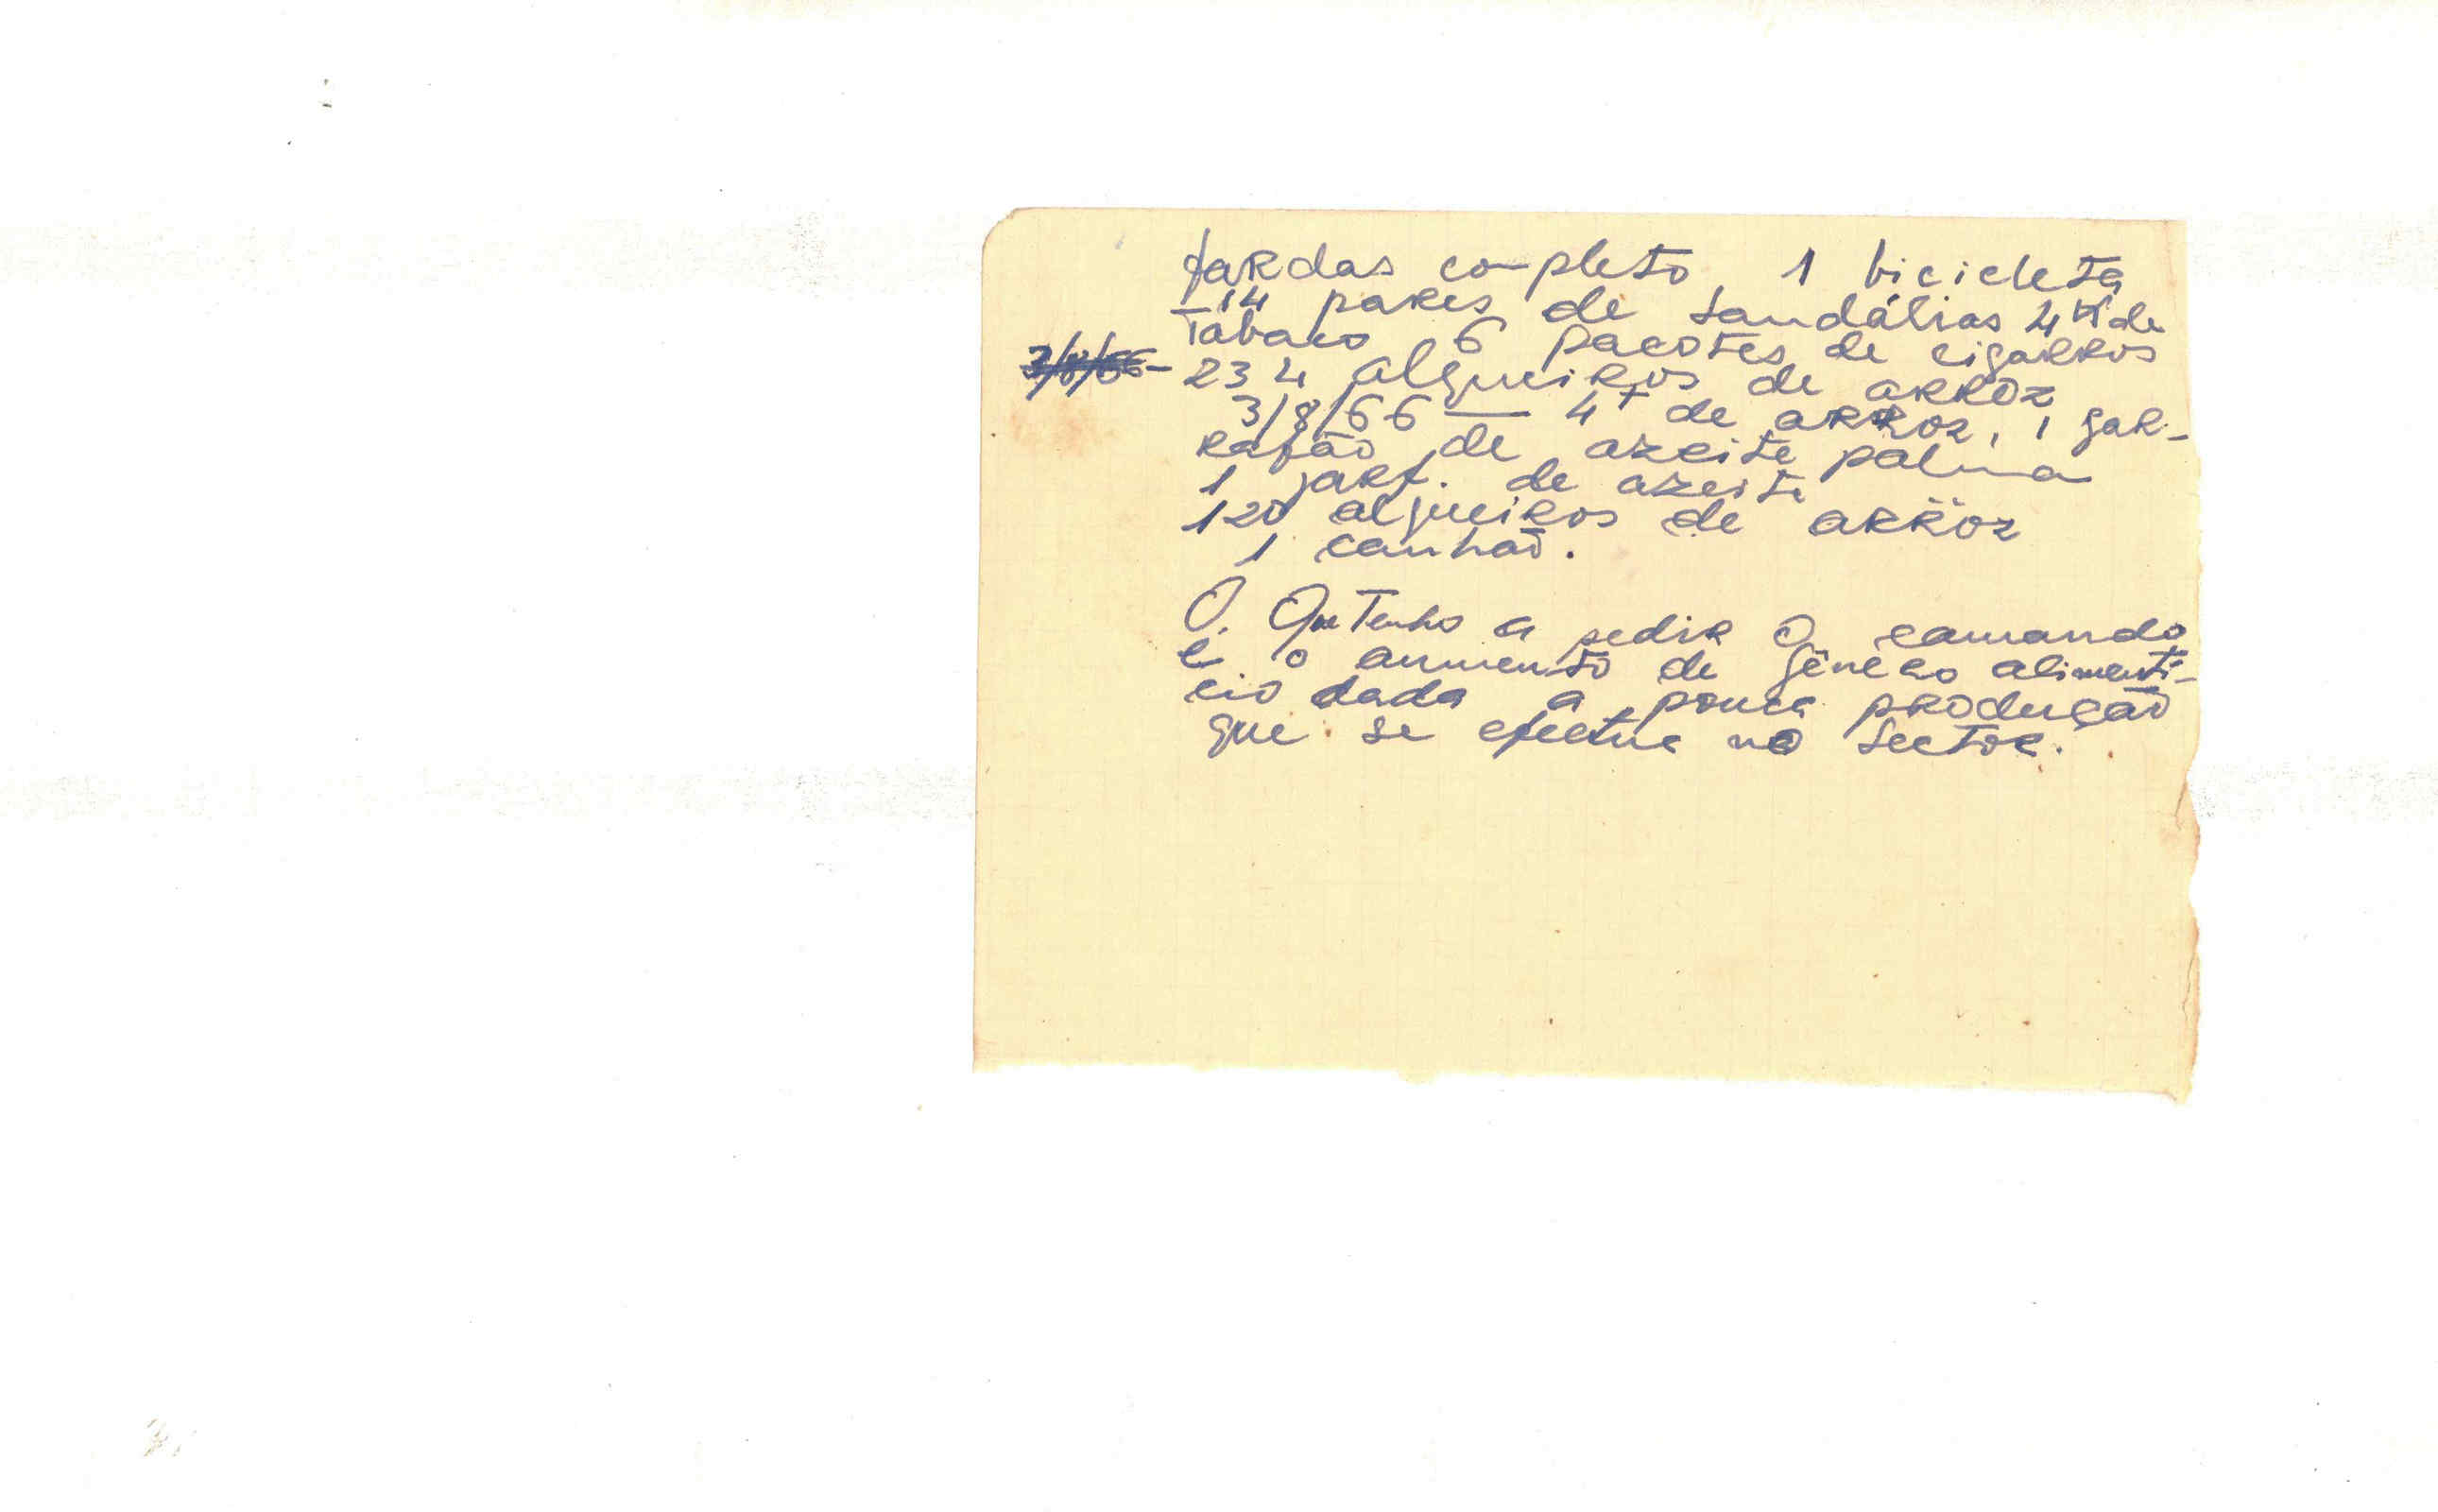 fardas completo, 1 bicicleta
14 pares de sandálias 4 K de
Tabaco 6 pacotes de cigarros
3/8/66 - 234 alqueiros de arroz
3/8/66 — 4T de arroz, 1 gar-
rafão de azeite palma
1 garf. de azeite
120 alqueiros de arroz
1 canhão.
O. Que Tenho a pedir o camando
é o aumento de gênero alimentí-
cio dada a pouca produção
que se efectue no sector.